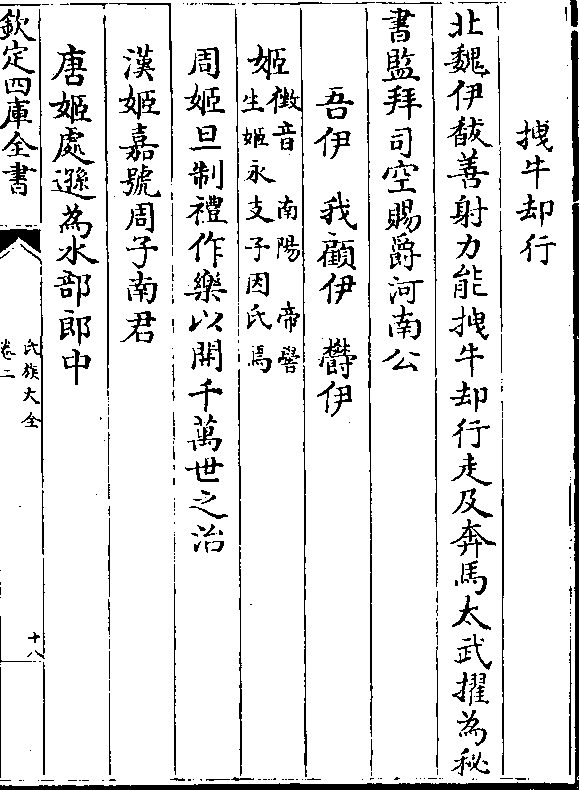 拽牛却行
北魏伊馛善射力能拽牛却行走及奔馬太武擢為秘
書監拜司空賜爵河南公
吾伊　我顧伊　欝伊
姬徵音　南陽　帝嚳
生姬水支子因氏焉
周姬旦制禮作樂以開千萬世之治
漢姬嘉號周子南君
唐姬處遜為水部郎中
欽定四庫全書
氏族大全
卷二
十八